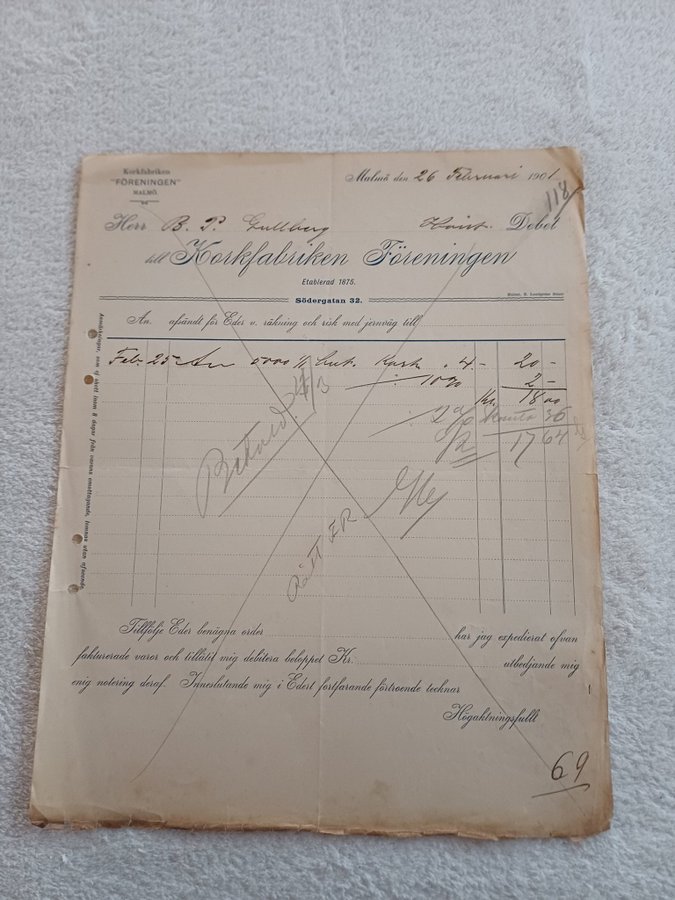 Korkfabriken
"FÖRENINGEN"
MALMÖ.
Malmö den 26 Februari 1901
118
Herr B. P. Gullberg Debet
till Korkfabriken Föreningen
Etablerad 1875.
Södergatan 32.
An. afsändt för Eder v. räkning och risk med jernväg till
Feb. 25 An 5000 4.- 20-
10% 2-
Kr. 18.00
2% 36
17 64
Betald 4/3
RÄTT
Anmärkningar, som ej skett inom 8 dagar från varans emottagande, lemnas utan afseende.
Tillfölje Eder benägna order har jag expedierat ofvan
fakturerade varor och tillåtit mig debitera beloppet Kr. utbedjande mig
enig notering deraf. Inneslutande mig i Edert fortfarande förtroende tecknar
Högaktningsfullt
69